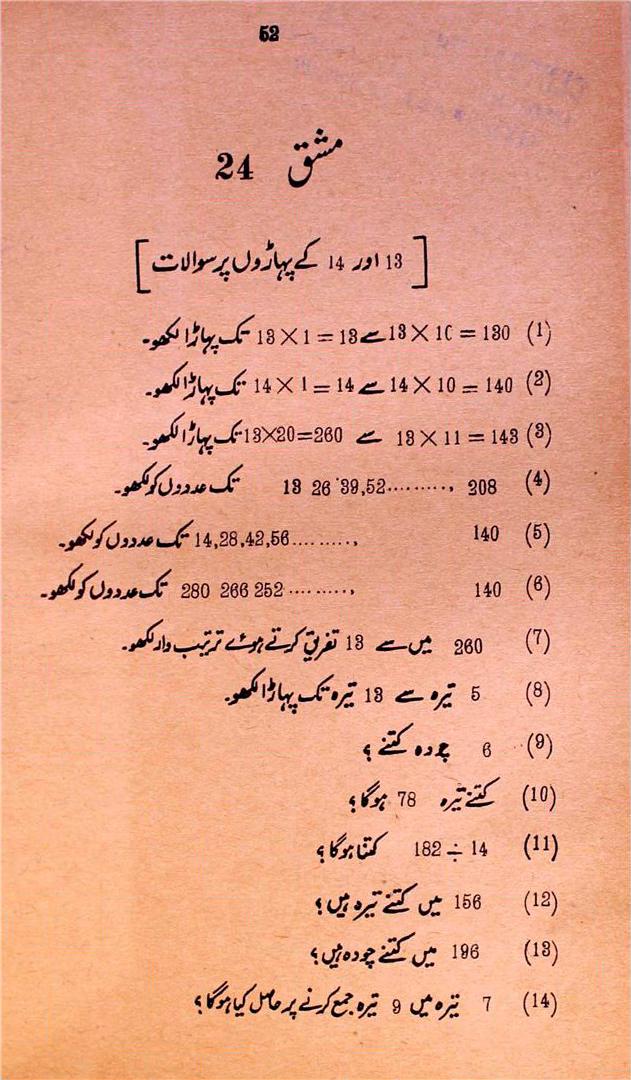 52
مشق 24
[13 اور 14 کے پہاڑوں پر سوالات]
(1) 13 × 10 = 130 سے 13 × 1 = 13 تک پہاڑا لکھو۔
(2) 14 × 10 = 140 سے 14 × 1 = 14 تک پہاڑا لکھو۔
(3) 13 × 11 = 143 سے 13×20=260 تک پہاڑا لکھو۔
(4) 208 ,.......... 13 26 39,52 تک عددوں کو لکھو۔
(5) 140 ,......... 14,28,42,56 تک عددوں کو لکھو۔
(6) 140 ,......... 280 266 252 تک عددوں کو لکھو۔
(7) 260 میں سے 13 تفریق کرتے ہوئے ترتیب وار لکھو۔
(8) 5 تیرہ سے 13 تیرہ تک پہاڑا لکھو۔
(9) 6 چودہ کتنے ؟
(10) کتنے تیرہ 78 ہوگا ؟
(11) 182 ÷ 14 کتنا ہوگا ؟
(12) 156 میں کتنے تیرہ ہیں ؟
(13) 196 میں کتنے چودہ ہیں ؟
(14) 7 تیرہ میں 9 تیرہ جمع کرنے پر حاصل کیا ہوگا ؟